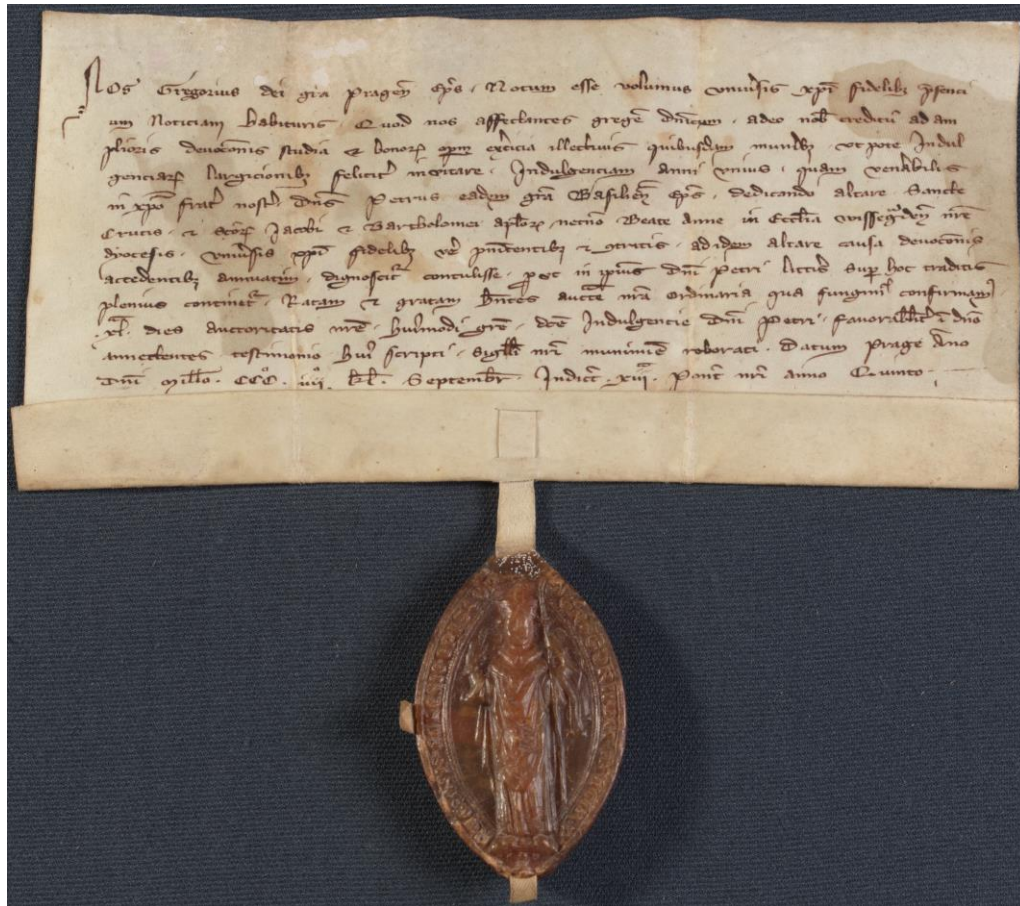 Nos Gregorius dei gra Pragen̄ ep̄s . Notum esse volumus vniuˀsis xp̄i fidelibꝫ p̄senci
um Noticiam habituris Quod nos affectantes gregē dn̄icum . adeo nob̄ creditū ad am
plioris deuocōnis studia ⁊ bonoꝝ op̄um exˀcicia illectiuis quibusdam munˀibꝫ . vt pote Indul
genciaꝝ largicionibꝫ felicitˀ inuitare . Indulgenciam anni vnius . quam venˀabilis
in xp̄o fratˀ nostˀ dn̄s Petrus eadem gr̄a Basilien̄ ep̄s . dedicando altare . Sancte
Crucis . ⁊ sc̄oꝝ Jacobi ⁊ Bartholomei ap̄loꝝ . necnō . Beate Anne in Ecc̄lia wissegˀden̄ nr̄e
dyocesis . vniuˀsis xp̄i fidelibꝫ vˀe pn̄itentibꝫ ⁊ ꝯtritis . ad idem altare causa deuocōnis
accedentibꝫ annuatim . dignoscitˀ contulisse . pˀut in ip̄ius dn̄i Petri litt̄is sup̄ hoc traditis
plenius continetˀ . Ratam ⁊ gratam hn̄tes auctˀte nr̄a Ordinaria qua fungimˀ confirmamˀ
.xl. dies auctoritatis nr̄e . huiˀmodi gr̄e . Indulgencie dn̄i Petri . fauorabilitˀ
annectentes testimonio huiˀ scripti . Sigilli nr̄i munimīe roborati . Datum Prage Anno
dn̄i Millo . CCC̊ . iiijͦ . kl̄ . Septembrˀ . Indict̄ . xiii . Pont̄ nr̄i anno Quinto .